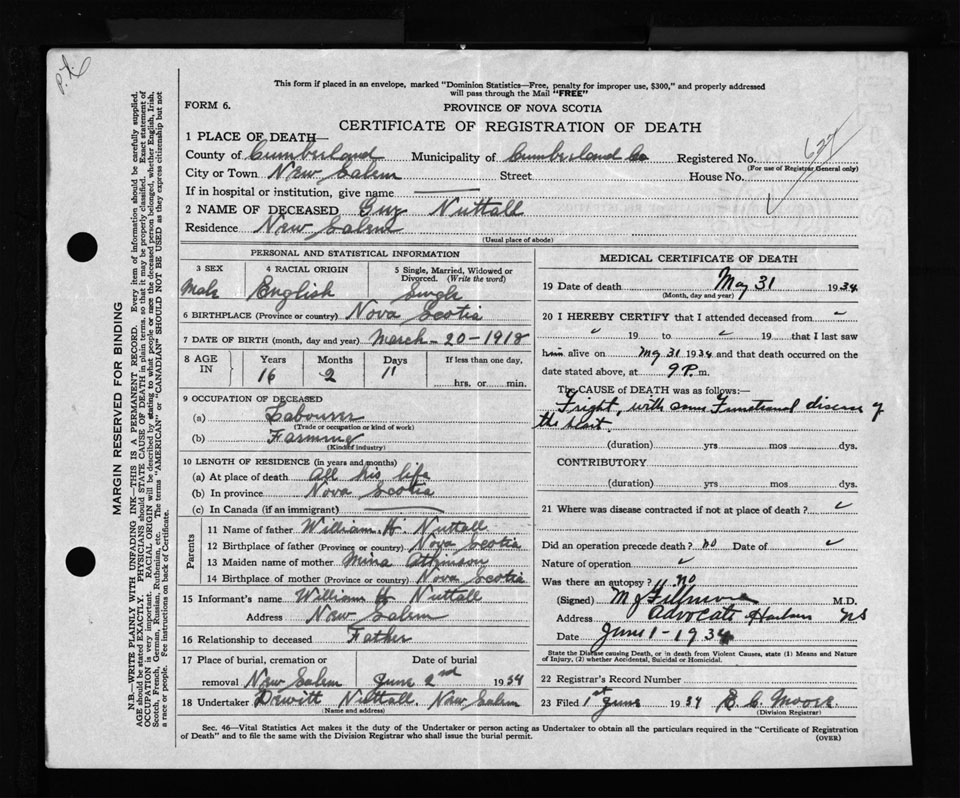 P.L.
This form if placed in an envelope, marked "Dominion Statistics—Free, penalty for improper use, $300," and properly addressed
will pass through the Mail "FREE"
FORM 6.
PROVINCE OF NOVA SCOTIA
CERTIFICATE OF REGISTRATION OF DEATH
627
1 PLACE OF DEATH—
County of Cumberland Municipality of Cumberland Co Registered No.
(For use of Registrar General only)
City or Town New Salem Street House No.
If in hospital or institution, give name
2 NAME OF DECEASED Guy Nuttall
Residence New Salem
(Usual place of abode)
PERSONAL AND STATISTICAL INFORMATION
3 SEX 4 RACIAL ORIGIN 5 Single, Married, Widowed or
Divorced. (Write the word)
Male English Single
6 BIRTHPLACE (Province or country) Nova Scotia
7 DATE OF BIRTH (month, day and year) March-20-1918
8 AGE IN Years Months Days If less than one day,
16 2 11 hrs. or min.
9 OCCUPATION OF DECEASED
(a) Labourer
(Trade or occupation or kind of work)
(b) Farming
(Kind of industry)
10 LENGTH OF RESIDENCE (in years and months)
(a) At place of death All his life
(b) In province Nova Scotia
(c) In Canada (if an immigrant)
Parents
11 Name of father William H. Nuttall
12 Birthplace of father (Province or country) Nova Scotia
13 Maiden name of mother Mina Atkinson
14 Birthplace of mother (Province or country) Nova Scotia
15 Informant's name William H Nuttall
Address New Salem
16 Relationship to deceased Father
17 Place of burial, cremation or Date of burial
removal New Salem June 2nd 1934
18 Undertaker Dewitt Nuttall, New Salem
(Name and address)
MEDICAL CERTIFICATE OF DEATH
19 Date of death May 31 1934
(Month, day and year)
20 I HEREBY CERTIFY that I attended deceased from
19 to 19 that I last saw
him alive on May 31 1934 and that death occurred on
date stated above, at 9 P. m.
The CAUSE OF DEATH was as follows:—
Fright, with some Functional disease of
the heart.
(duration) yrs mos dys.
CONTRIBUTORY
(duration) yrs mos dys.
21 Where was disease contracted if not at place of death?
Did an operation precede death? no Date of
Nature of operation
Was there an autopsy? no
(Signed) M J Fillmore M.D.
Address Advocate Harbour NS
Date June 1-1934
State the Disease causing Death, or in death from Violent Causes, state (1) Means and Nature
of Injury, (2) whether Accidental, Suicidal or Homicidal.
22 Registrar's Record Number
23 Filed 1st June 1934 E. C. Moore
(Division Registrar)
Sec. 46—Vital Statistics Act makes it the duty of the Undertaker or person acting as Undertaker to obtain all the particulars required in the "Certificate of Registration
of Death" and to file the same with the Division Registrar who shall issue the burial permit. (OVER)
MARGIN RESERVED FOR BINDING
N.B.—WRITE PLAINLY WITH UNFADING INK—THIS IS A PERMANENT RECORD. Every item of information should be carefully supplied.
AGE should be stated EXACTLY. PHYSICIANS should STATE CAUSE OF DEATH in plain terms, so that it may be properly classified. Exact statement of
OCCUPATION is very important. RACIAL ORIGIN will be described by stating to what people or race the deceased person belonged, whether English, Irish,
Scotch, French, German, Russian, Ruthenian, etc. The terms "AMERICAN" or "CANADIAN" SHOULD NOT BE USED as they express citizenship but not
a race or people. Fee instructions on back of Certificate.